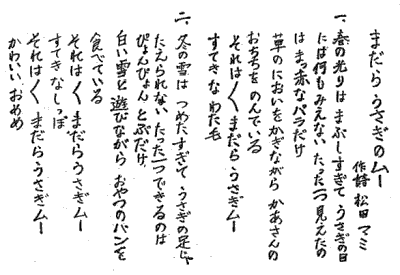 まだらうさぎのムー
作詩 松田 マミ
一、春の光りは まぶしすぎて うさぎの目
には何もみえない たった一つ見えたの
は まっ赤なバラだけ
草のにおいをかぎながら かあさんの
おちちを のんでいる
それは〱 まだら・うさぎムー
すてきな わた毛
二、冬の雪は つめたすぎて うさぎの足じゃ
たえられない たった一つできるのは
ぴょんぴょん とぶだけ
白い雪と 遊びながら おやつのパンを
食べている
それは〱 まだら・うさぎムー
すてきなしっぽ
それは〱 まだら・うさぎムー
かわいい、おめめ